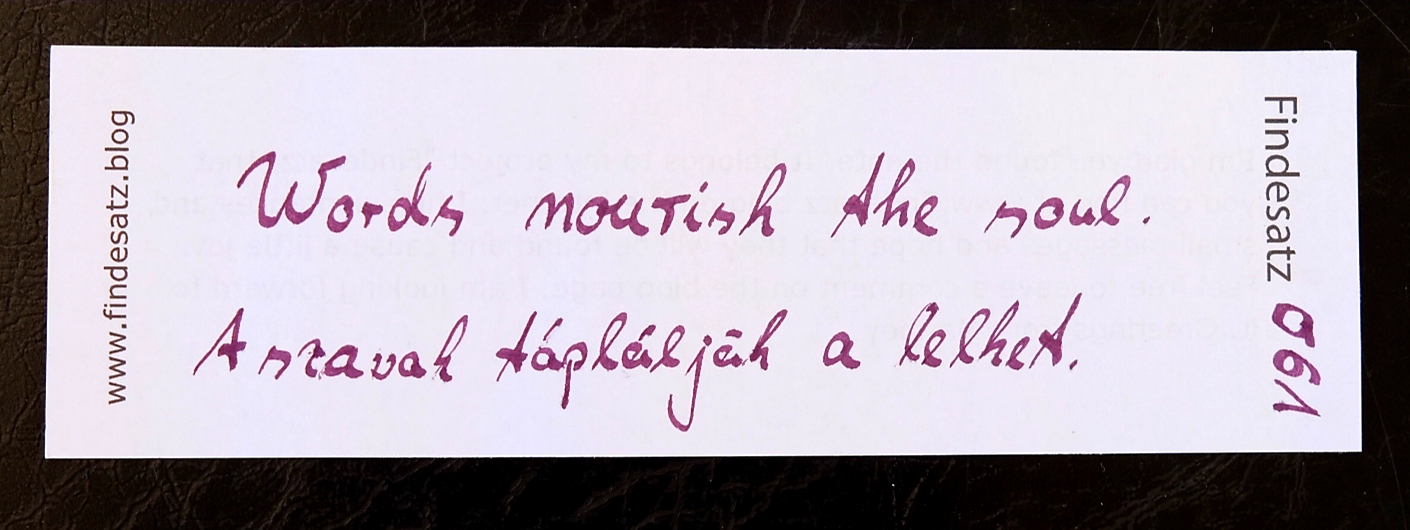 www.findesatz.blog
Words nourish the soul.
A szavak táplálják a lelket.
Findesatz 061